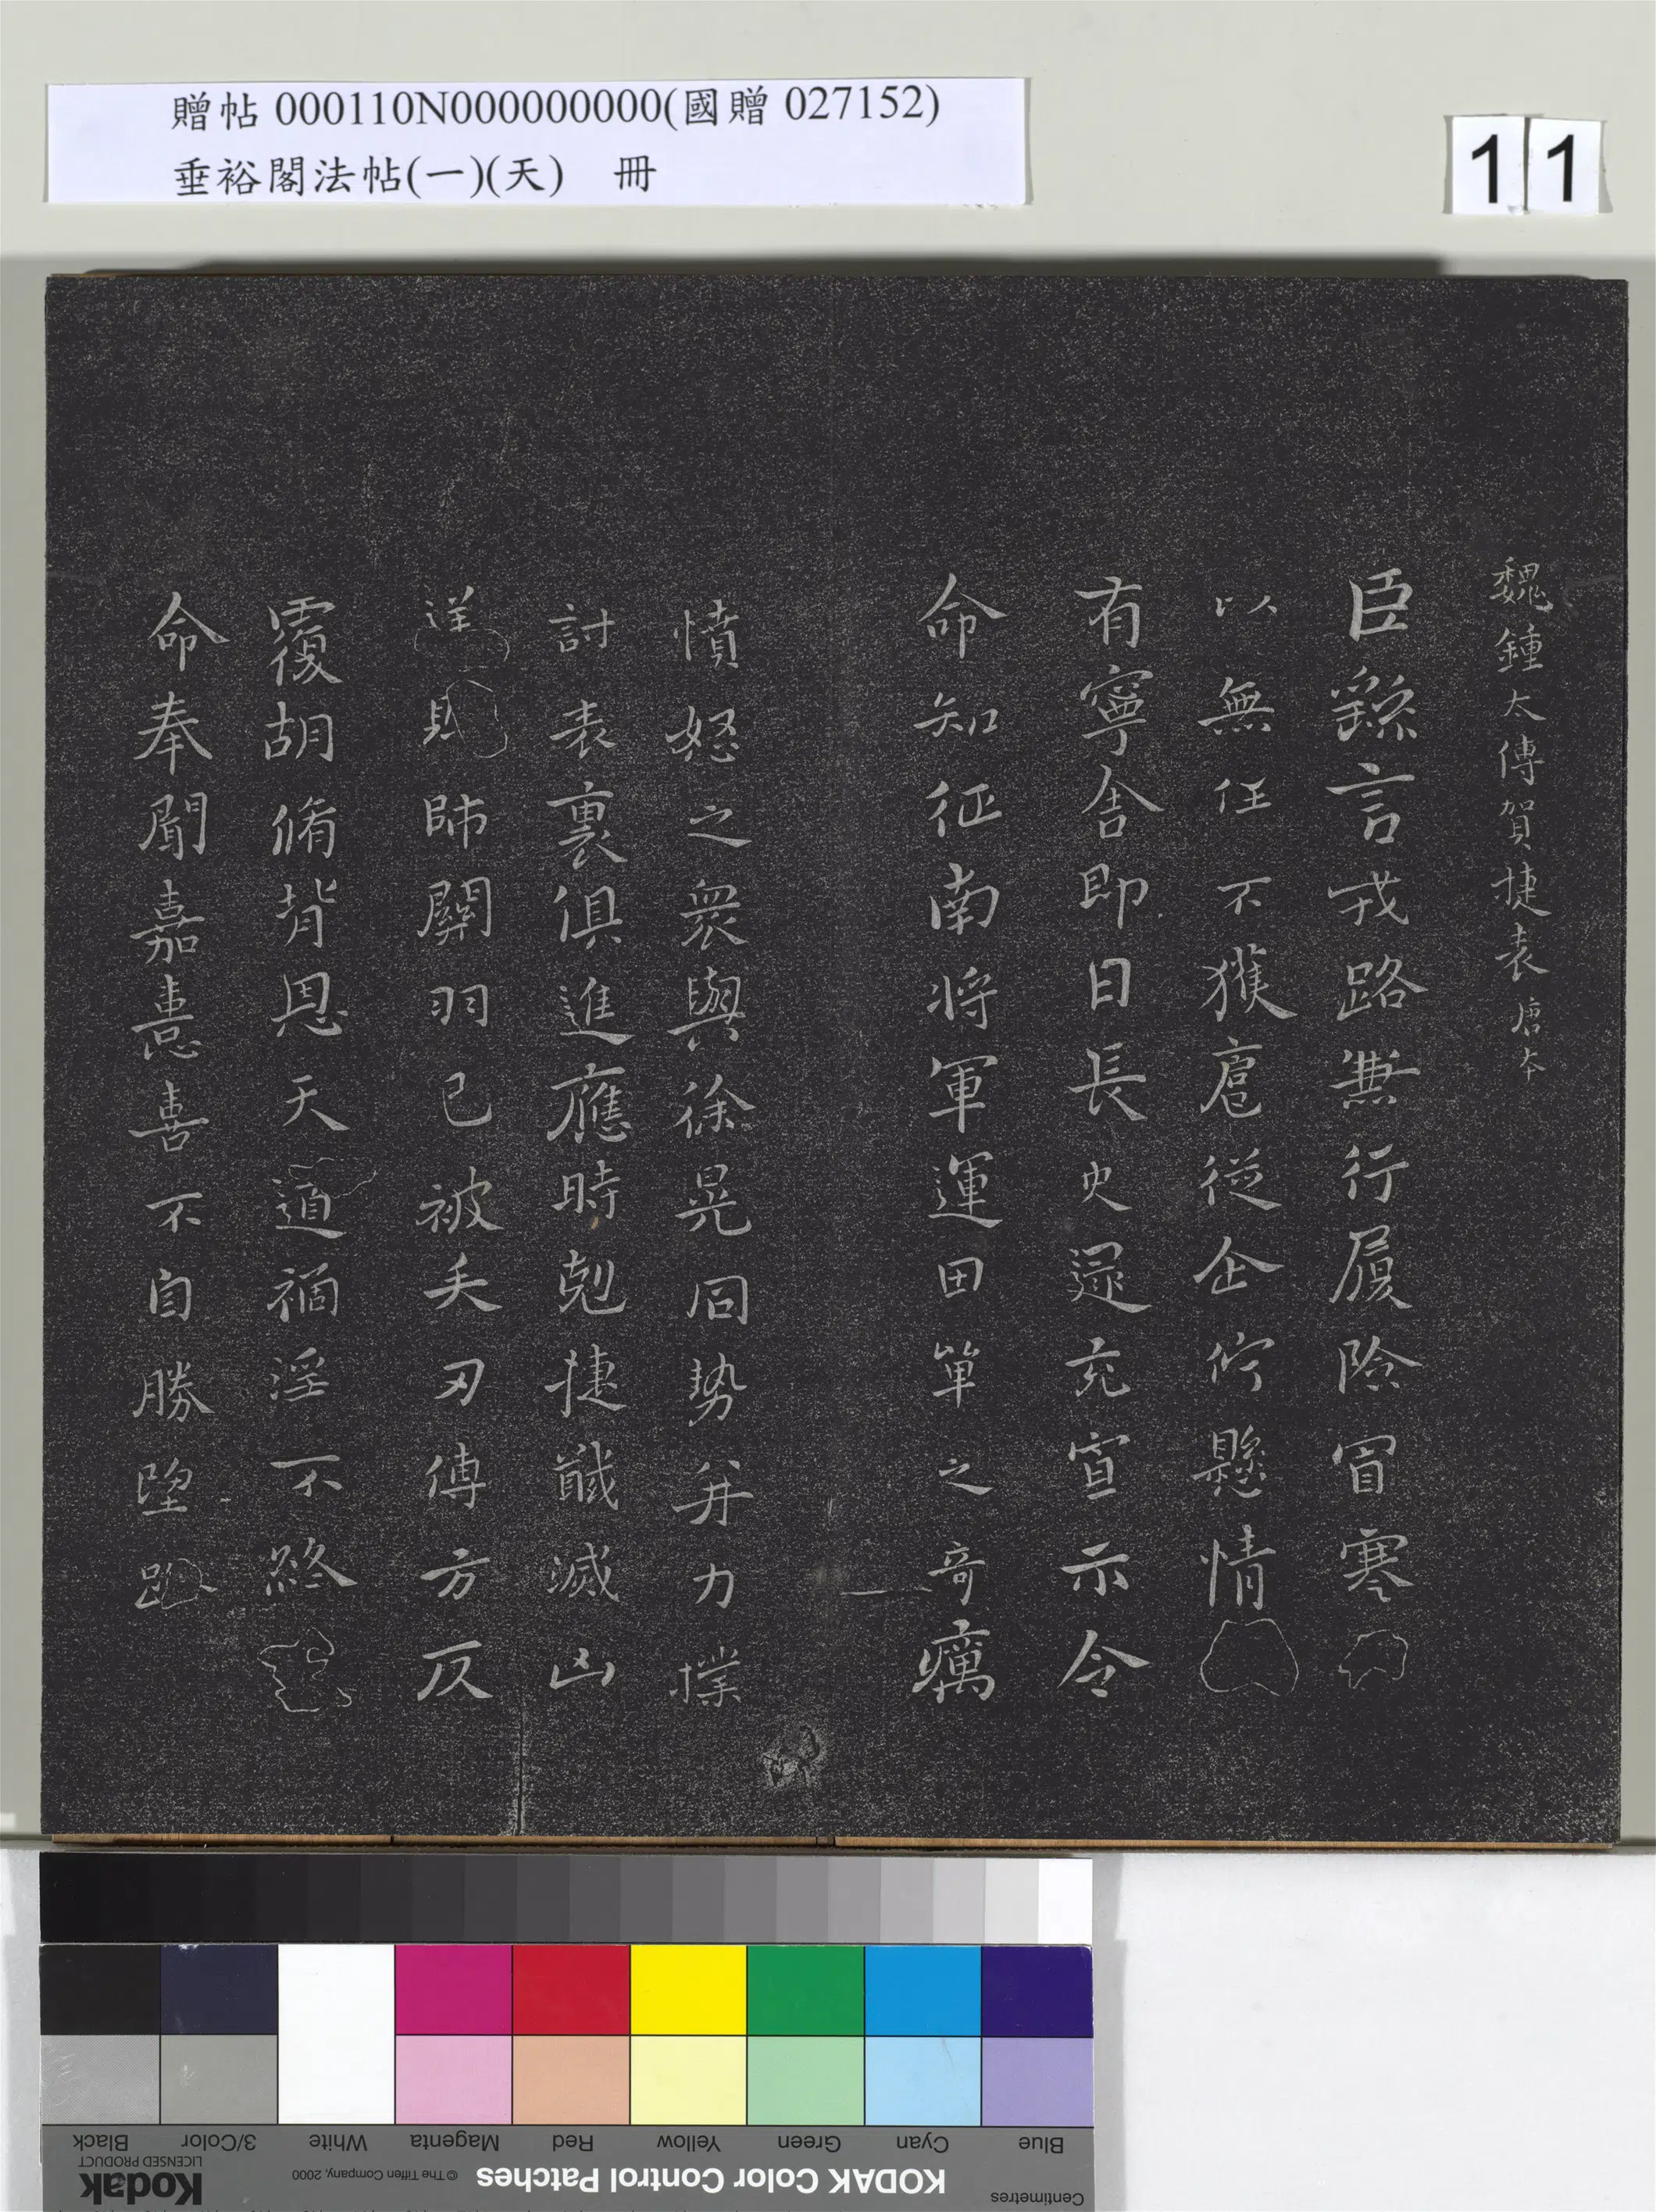 贈帖 000110N000000000(國贈 027152)
垂裕閣法帖(一)(天) 冊
11
魏鍾太傅賀捷表 唐本
臣繇言戎路無行履險冒寒
以無任不獲扈從企佇懸情
有寧舍即日長史逯充宣示令
命知征南將軍運田單之奇厲
憤怒之衆與徐晃同勢并力撲
討表裏俱進應時剋捷馘滅凶
逆賊帥關羽已被矢刃傅方反
覆胡脩背恩天道禍淫不終
命奉聞嘉憙喜不自勝望路
Blue
Cyan
Green
Yellow
Red
Magenta
White
3/Color
Black
Centimetres
KODAK Color Control Patches
© The Tiffen Company, 2000
Kodak
LICENSED PRODUCT